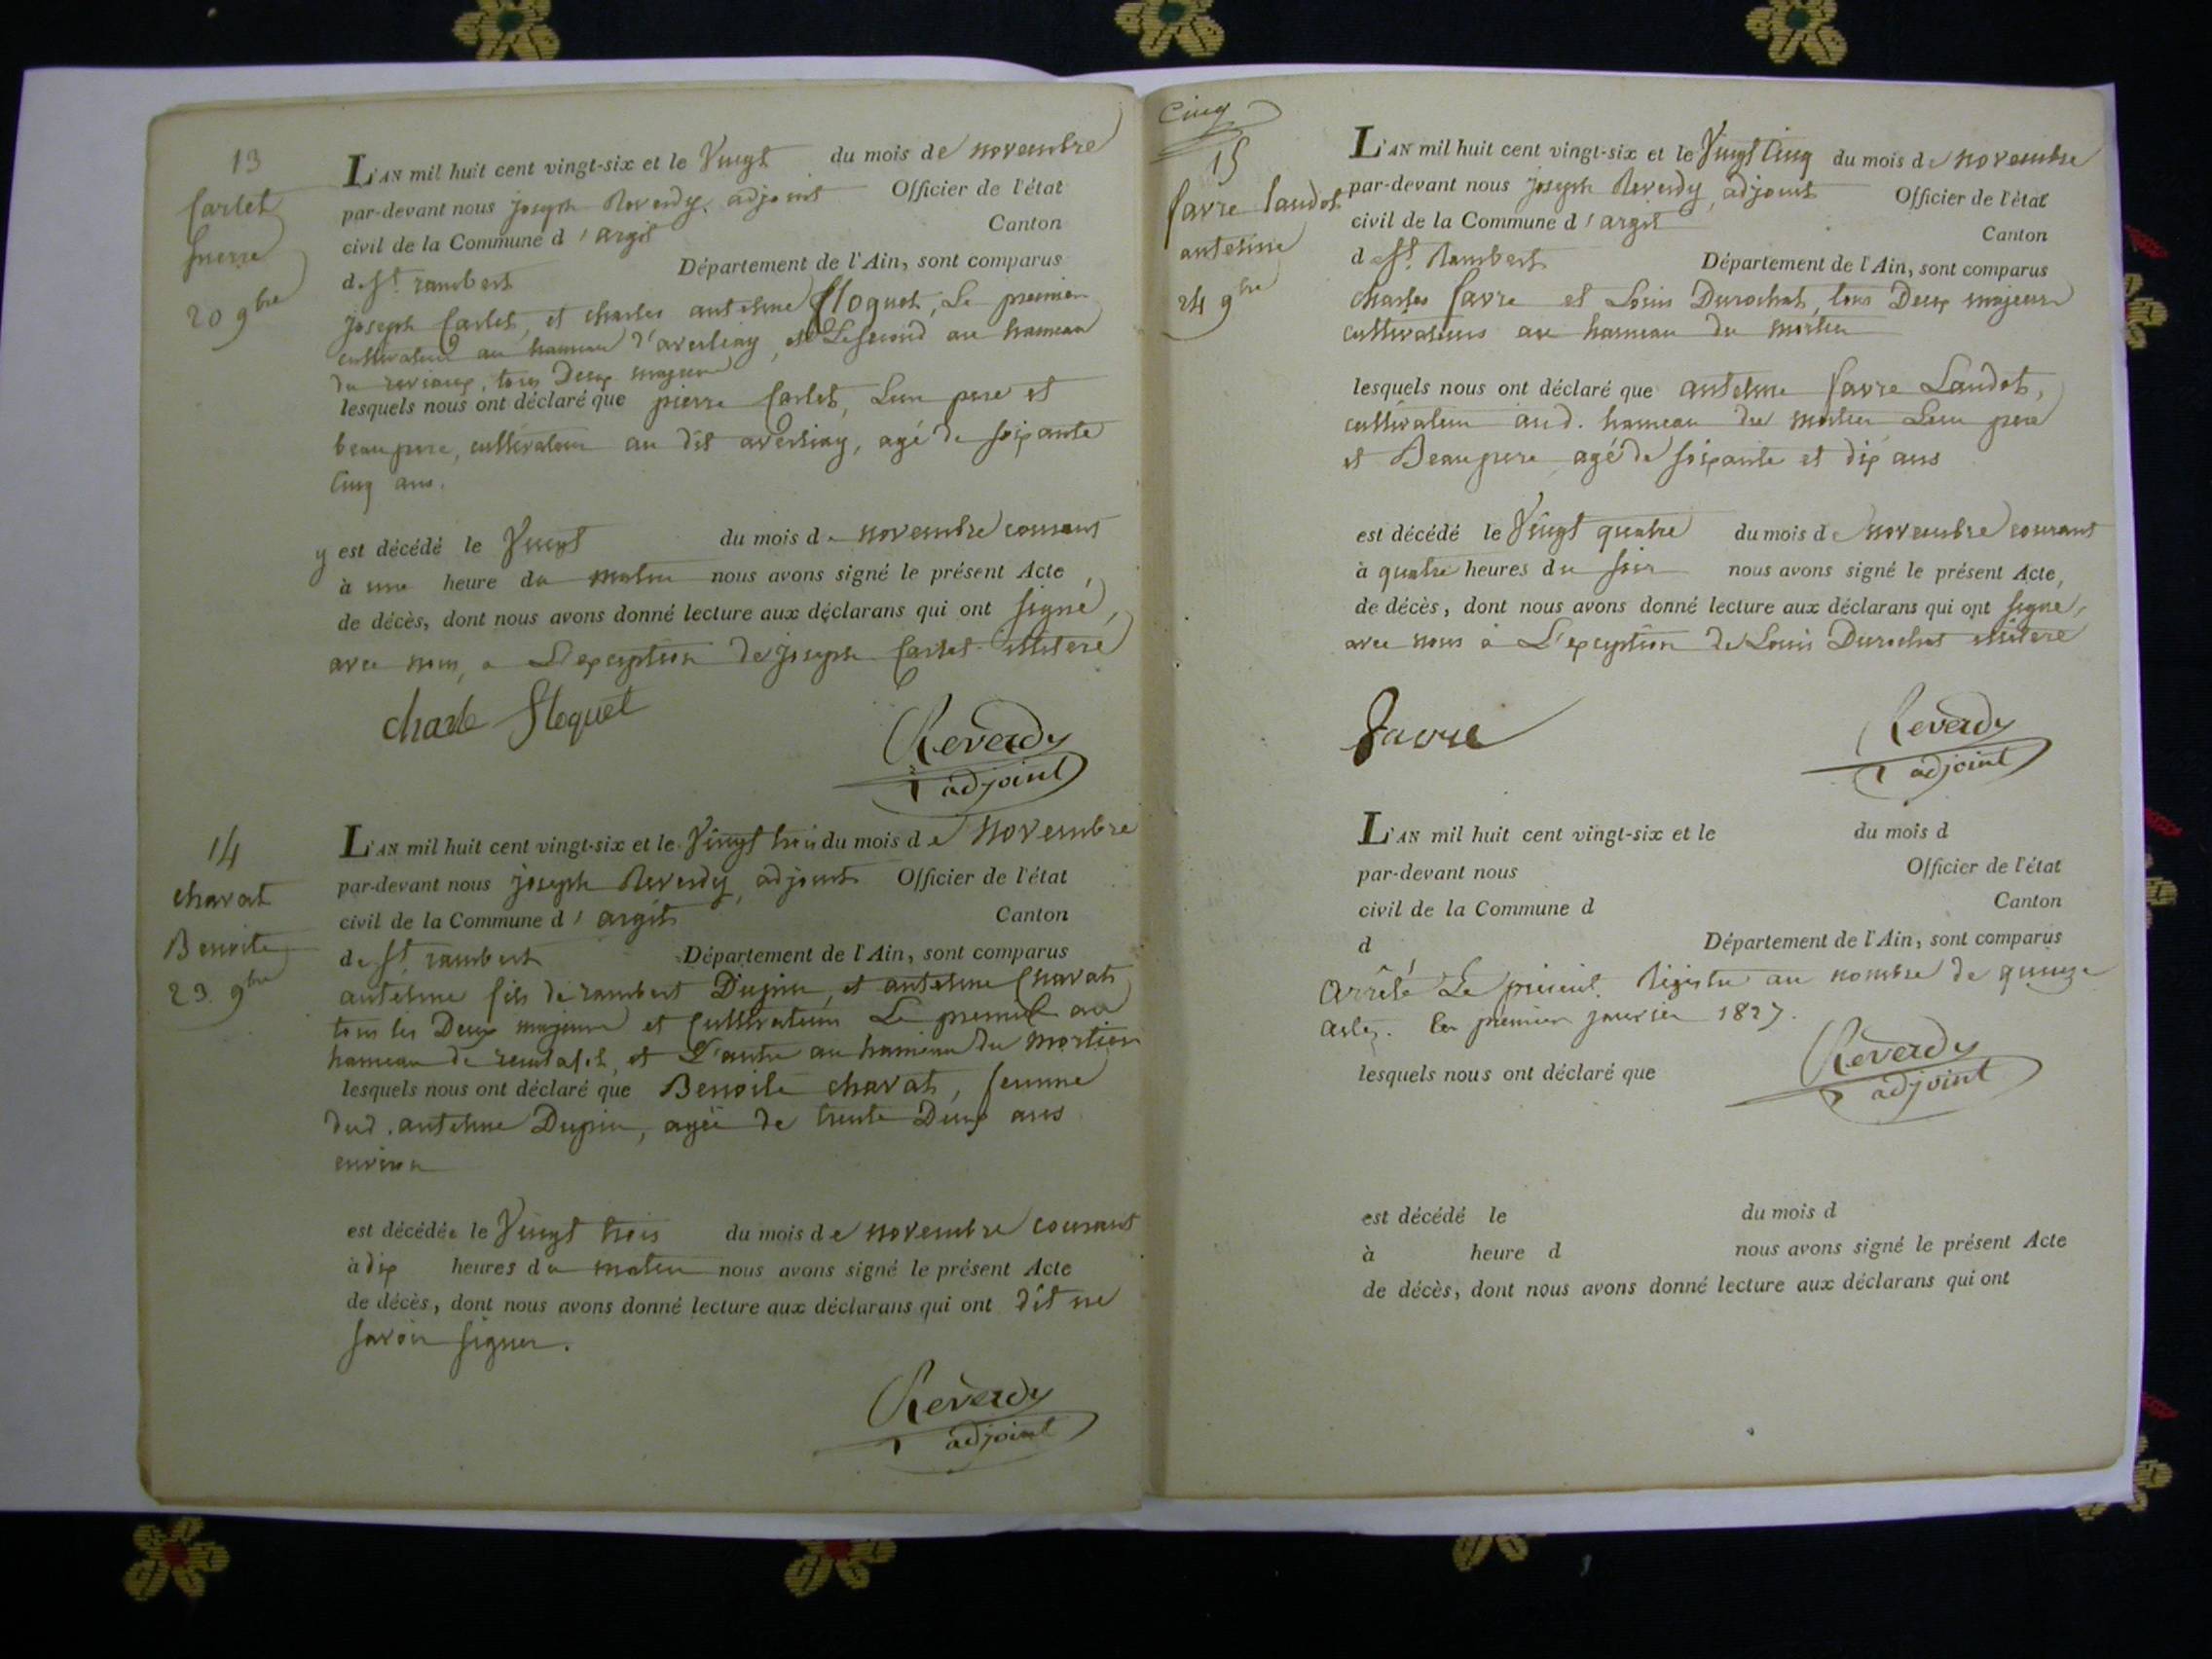 13
Carlet
pierre
20 9bre
L'AN mil huit cent vingt-six et le Vingt du mois de novembre
par-devant nous joseph Reverdy, adjoint Officier de l'état
civil de la Commune d'argit Canton
de St. rambert Département de l'Ain, sont comparus
joseph Carlet, et charles antelme floquet, Le premier
cultivateur au hameau d'averliay, et Le second au hameau
du, tous Deux majeurs
lesquels nous ont déclaré que pierre Carlet, Leur pere et
beaupere, cultivateur au dit averliay, agé de soixante
Cinq ans.
y est décédé le Vingt du mois de novembre courant
à une heure du matin nous avons signé le présent Acte,
de décès, dont nous avons donné lecture aux déclarans qui ont signé,
avec nous, a L'exception de joseph Carlet illitéré
charle floquet
Reverdy
adjoint
14
chavat
Benoite
23 9bre
L'AN mil huit cent vingt-six et le Vingt trois du mois de novembre
par-devant nous joseph Reverdy, adjoint Officier de l'état
civil de la Commune d'argit Canton
de St. rambert Département de l'Ain, sont comparus
antelme fils de rambert Dupin, et antelme Chavat
tous les Deux majeurs et Cultivateurs Le premier au
hameau de, et L'autre au hameau du mortier
lesquels nous ont déclaré que Benoite chavat, femme
dud. antelme Dupin, agée de trente Deux ans
environ
est décédée le Vingt trois du mois de novembre courant
à dix heures du matin nous avons signé le présent Acte
de décès, dont nous avons donné lecture aux déclarans qui ont dit ne
savoir signer.
Reverdy
adjoint
Cinq
15
favre Landot
antelme
24 9bre
L'AN mil huit cent vingt-six et le Vingt Cinq du mois de novembre
par-devant nous joseph Reverdy, adjoint Officier de l'état
civil de la Commune d'argit Canton
de St. Rambert Département de l'Ain, sont comparus
charles favre et Louis Durochat, tous Deux majeurs
cultivateurs au hameau du mortier
lesquels nous ont déclaré que antelme favre Landot,
cultivateur aud. hameau du mortier Leur pere
et Beaupere agé de soixante et dix ans
est décédé le Vingt quatre du mois de novembre courant
à quatre heures du soir nous avons signé le présent Acte,
de décès, dont nous avons donné lecture aux déclarans qui ont signé,
avec nous à L'exception de Louis Durochat illitéré
favre
Reverdy
adjoint
L'AN mil huit cent vingt-six et le du mois d
par-devant nous Officier de l'état
civil de la Commune d Canton
d Département de l'Ain, sont comparus
Arrêté Le présent Régistre au nombre de quinze
actes. Le premier janvier 1827.
lesquels nous ont déclaré que
Reverdy
adjoint
est décédé le du mois d
à heure d nous avons signé le présent Acte
de décès, dont nous avons donné lecture aux déclarans qui ont